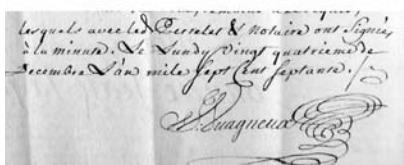 lesquels avec led. Perrelet & Notaire ont Signés
à la minute. Le Lundy Vingt quatrieme de
Decembre L'an mile Sept Cent Septante. /